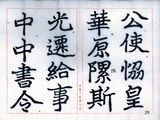 公使恊皇
華原隰斯
光遷給事
中中書令